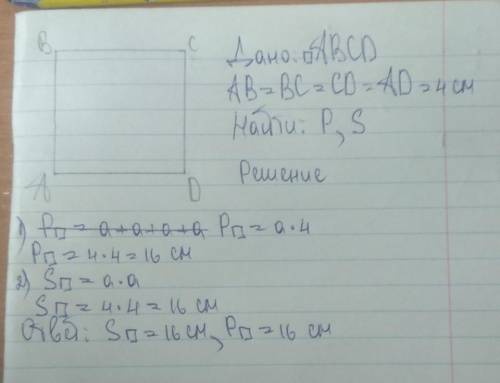 B C
Дано: □ABCD
AB=BC=CD=AD=4 см
Найти: P, S
A D
Решение
1) ~~P□ = a+a+a+a~~ P□ = a·4
P□ = 4·4=16 см
2) S□ = a·a
S□ = 4·4=16 см
Ответ: S□=16см, P□=16 см